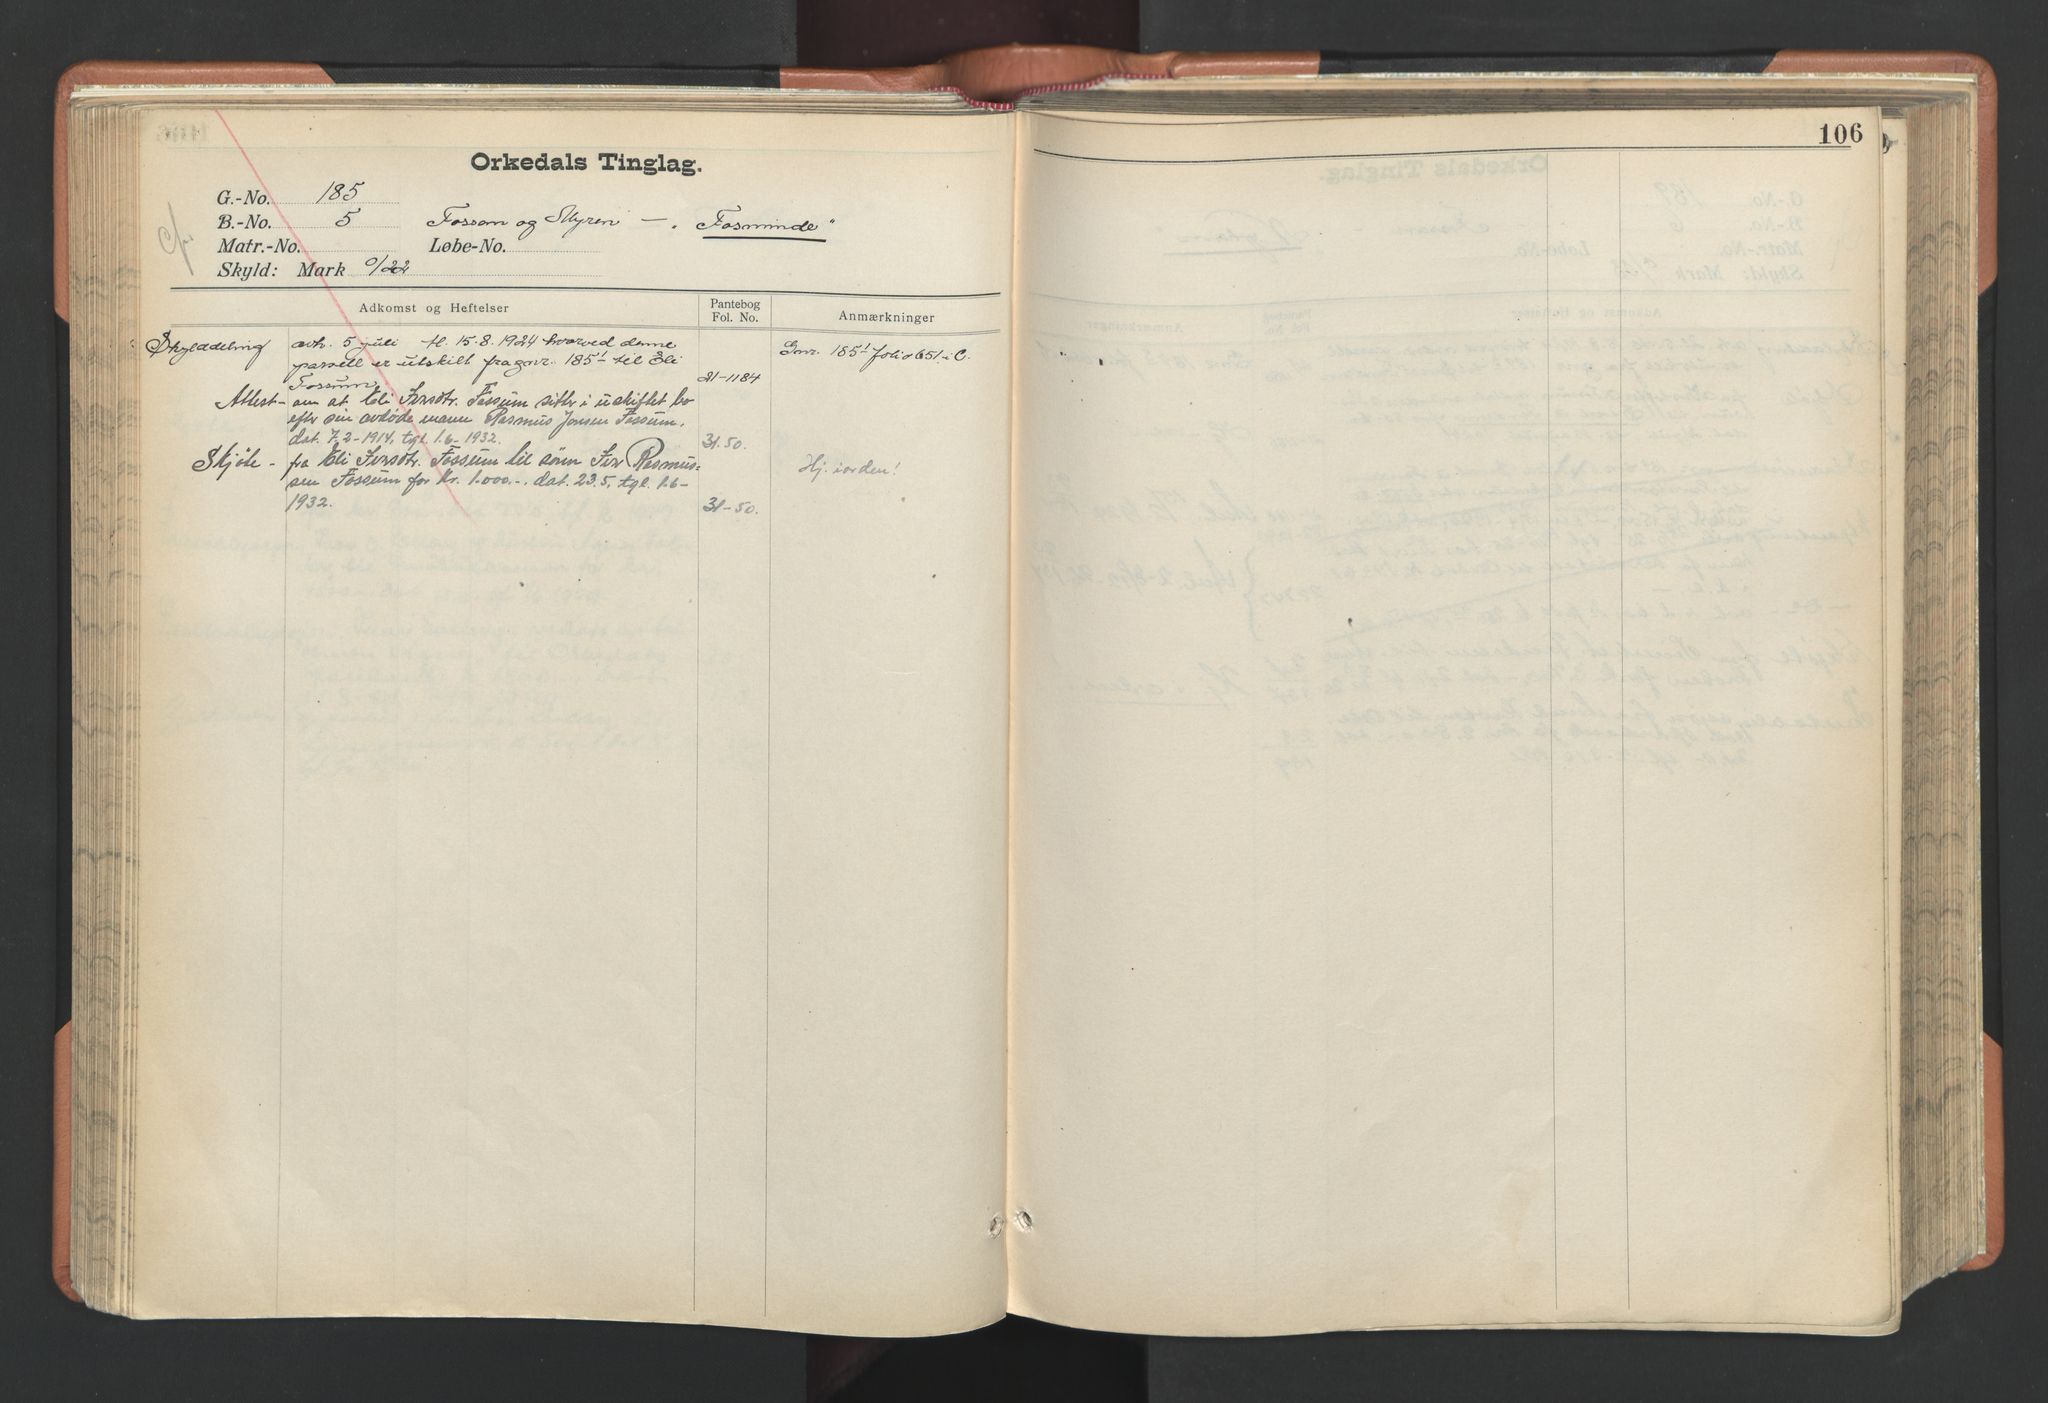 106
Orkedals Tinglag.
G.-No. 185
B.-No. 5 Fossom og Myren — „Fosminde“
Matr.-No. Løbe-No.
Skyld: Mark 0/22
Adkomst og Heftelser Pantebog Fol. No. Anmærkninger
Skylddeling avh. 5 juli tl. 15.8.1924 hvorved denne
parsell er utskilt fra gnr. 185¹ til Eli Gnr. 185¹ folio 651 i C.
Fossum 21-1184
Attest - om at Eli Iversdtr. Fossum sitter i uskiftet bo
efter sin avdøde mann Rasmus Jonsen Fossum,
dat. 7.2-1914, tgl. 1.6-1932. 31-50.
Skjøte - fra Eli Iversdtr. Fossum til sønn Iver Rasmus- Hj. iorden!
sen Fossum for kr. 1.000.-. dat. 23.5, tgl. 1.6-
1932. 31-50.